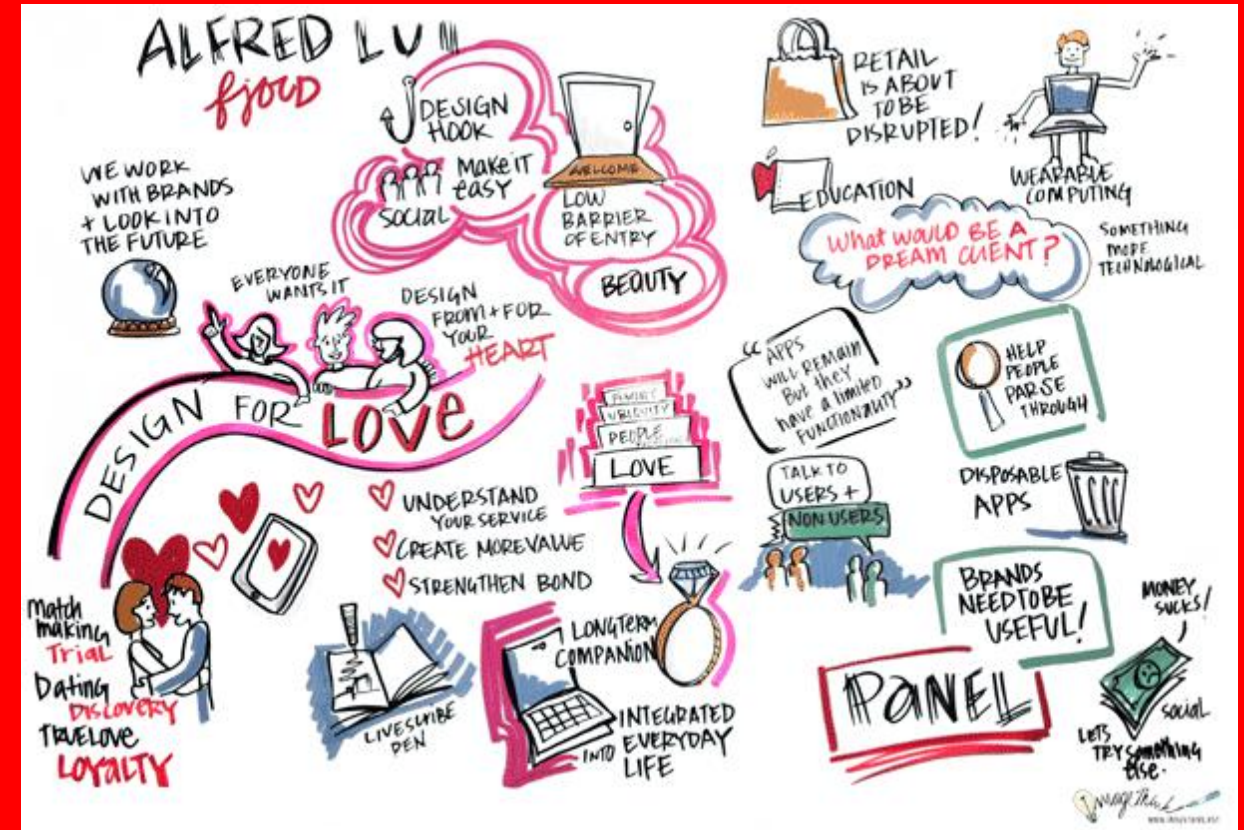 ALFRED LUI
fjord
WE WORK
WITH BRANDS
+ LOOK INTO
THE FUTURE
DESIGN
HOOK
MAKE IT
EASY
SOCIAL
WELCOME
LOW
BARRIER
OF ENTRY
BEAUTY
EVERYONE
WANTS IT
DESIGN
FROM + FOR
YOUR
HEART
DESIGN FOR LOVE
UNDERSTAND
YOUR SERVICE
CREATE MORE VALUE
STRENGTHEN BOND
UBIQUITY
PEOPLE
LOVE
Match
making
Trial
Dating
DISCOVERY
TRUE LOVE
LOYALTY
LIVESCRIBE
PEN
LONGTERM
COMPANION
INTEGRATED
INTO EVERYDAY
LIFE
RETAIL
IS ABOUT
TO BE
DISRUPTED!
WEARABLE
COMPUTING
EDUCATION
What would BE A
DREAM CLIENT?
SOMETHING
MORE
TECHNOLOGICAL
"APPS
WILL REMAIN
But they
have a limited
FUNCTIONALITY"
HELP
PEOPLE
PARSE
THROUGH
TALK TO
USERS +
NON USERS
DISPOSABLE
APPS
BRANDS
NEED TO BE
USEFUL!
PANEL
MONEY
SUCKS!
social
LETS
TRY something
else.
ImageThink